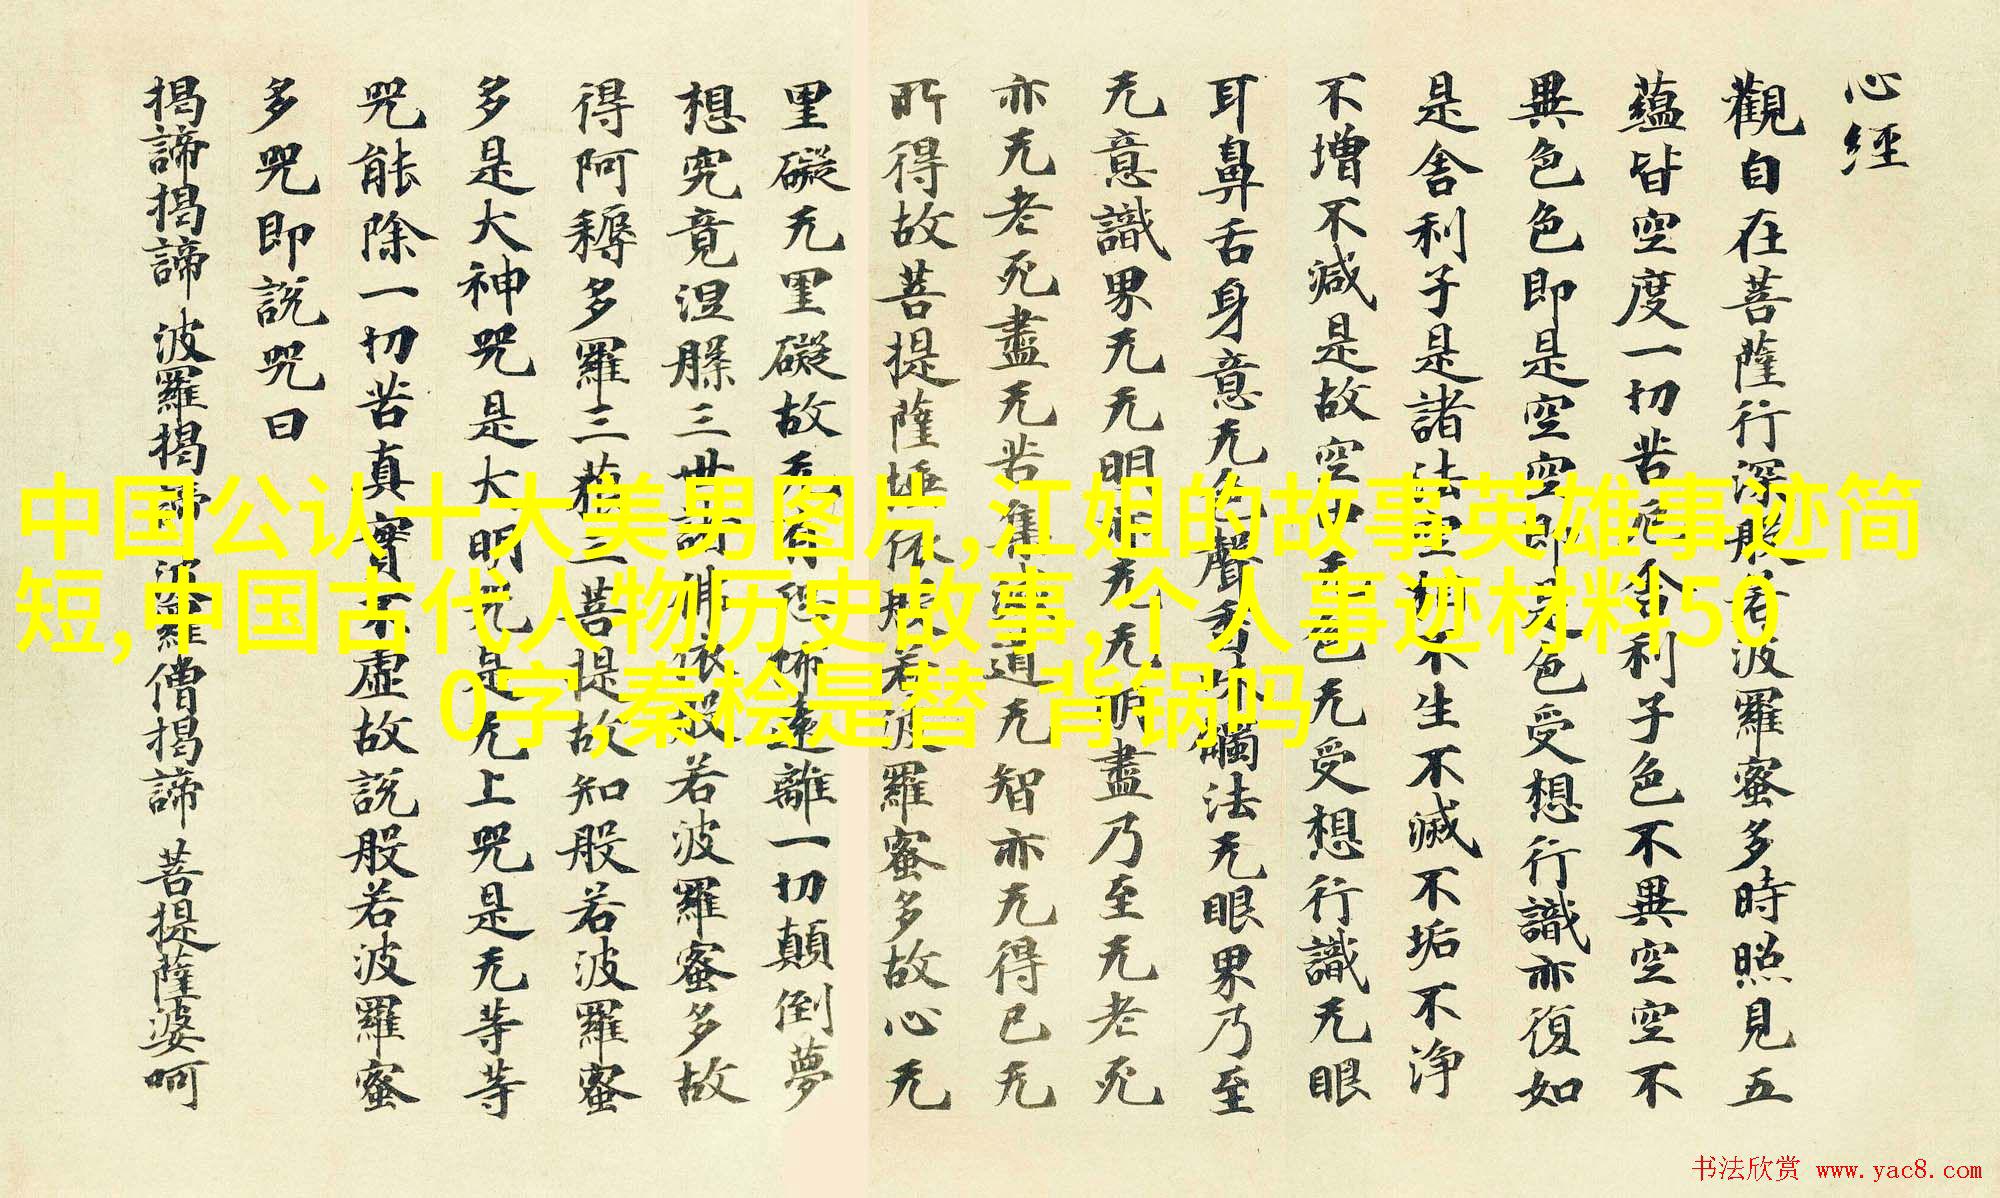 心經
觀自在菩薩行深般若波羅蜜多時照見五
蘊皆空度一切苦厄舍利子色不異空空不
異色色即是空空即是色受想行識亦復如
是舍利子是諸法空相不生不滅不垢不淨
不增不減是故空中无色无受想行識无眼
耳鼻舌身意无色聲香味觸法无眼界乃至
无意識界无无明亦无无明盡乃至无老死
亦无老死盡无苦集滅道无智亦无得已无
所得故菩提薩埵依般若波羅蜜多故心无
罣礙无罣礙故无有恐怖遠離一切顛倒夢
想究竟涅槃三世諸佛依般若波羅蜜多故
得阿耨多羅三藐三菩提故知般若波羅蜜
多是大神咒是大明咒是无上咒是无等等
咒能除一切苦真實不虛故說般若波羅蜜
多咒即說咒曰
揭諦揭諦 波羅揭諦 波羅僧揭諦 菩提薩婆呵
中国公认十大美男图片,江姐的故事英雄事迹简
短,中国古代人物历史故事,个人事迹材料50
0字,秦桧是替 背锅吗
书法欣赏 www.yac8.com